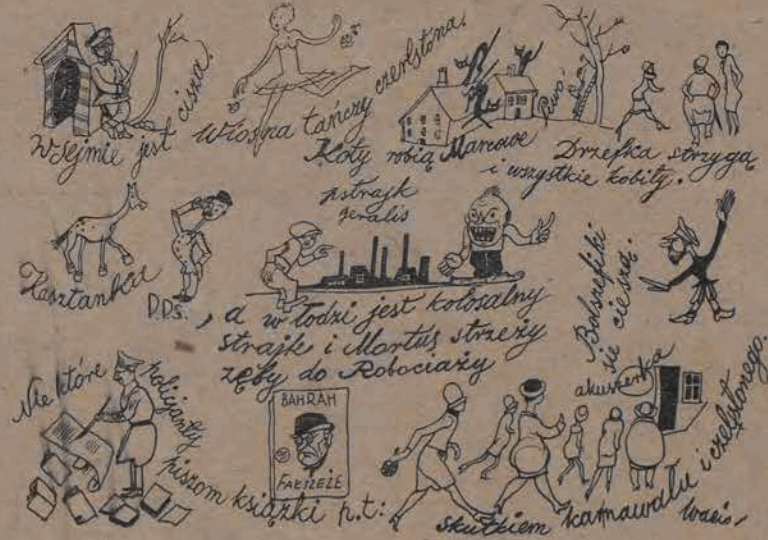 W sejmie jest cisza.
Wiosna tańczy czerlstona.
Koty robią Marcowe
Drzefka strzygą
i wszystkie kobity.
Kasztanka
P.P.S.
pstrajk
jeralis
, a w Łodzi jest kolosalny
strajk i Martuś strzeży
zęby do Robociaży
Bolszefiki
się cieszą.
Nie które policjanty
piszom książki p.t:
BAHRAH
FAŁSZEŻE
akuszerka
skutkiem karnawału i czelstonego.
Wacio,